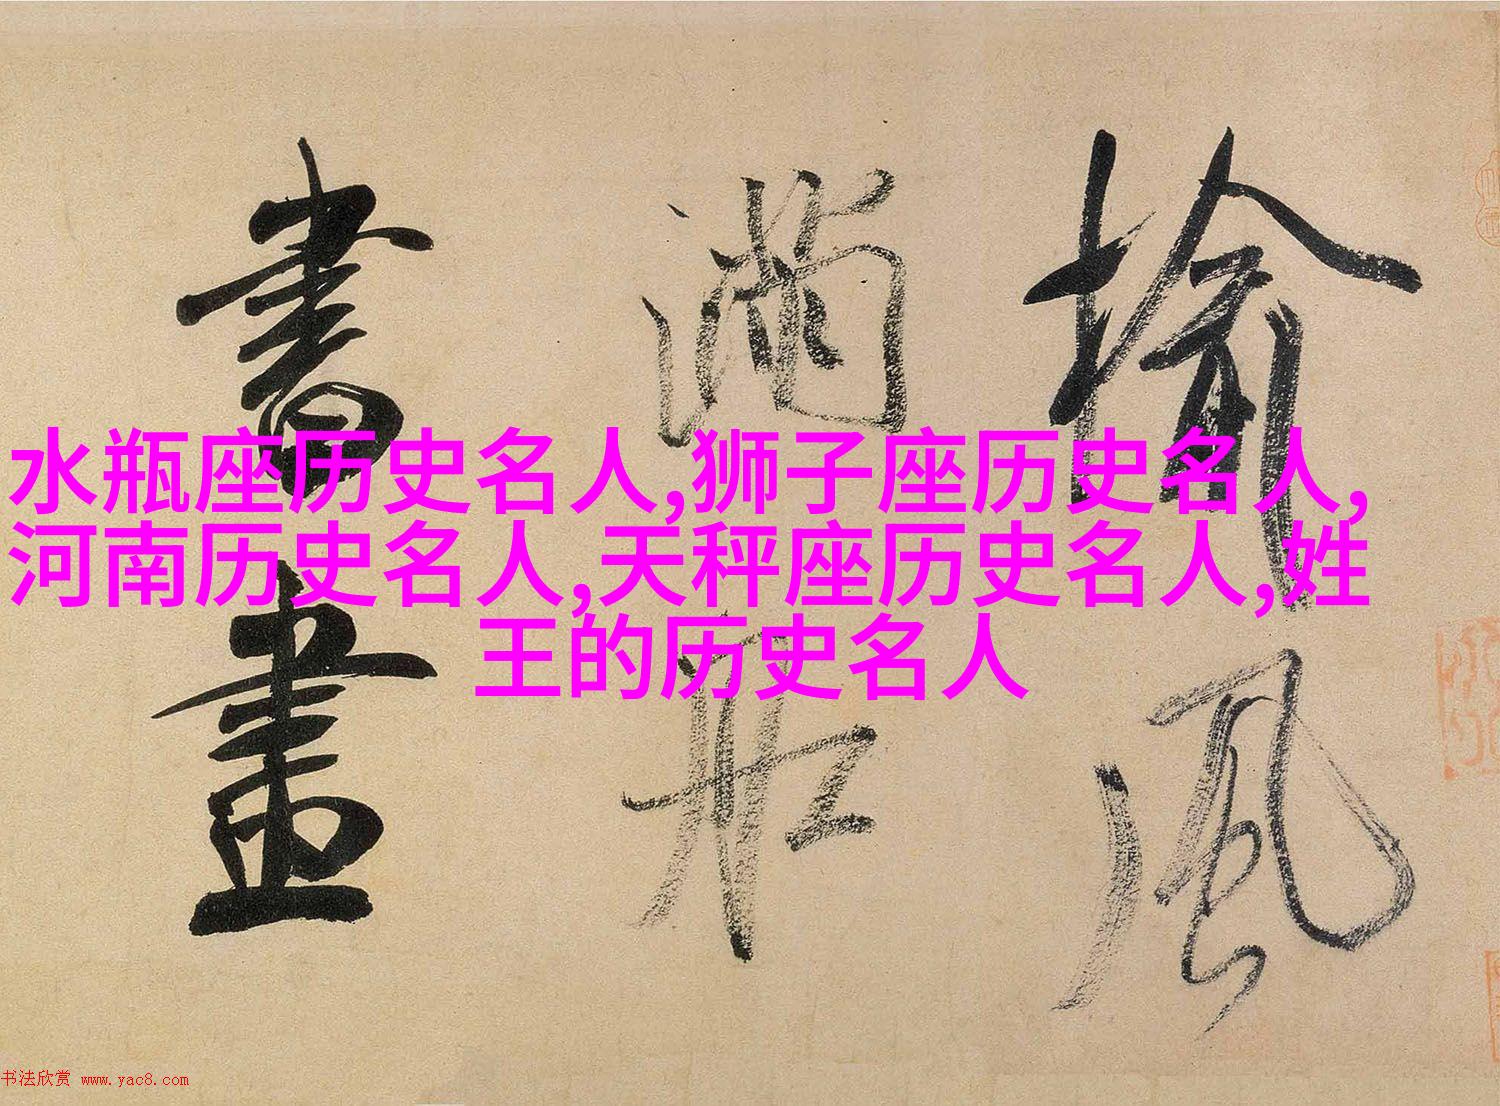 揄風
滿
書畫
水瓶座历史名人,狮子座历史名人,
河南历史名人,天秤座历史名人,姓
王的历史名人
书法欣赏 www.yac8.com